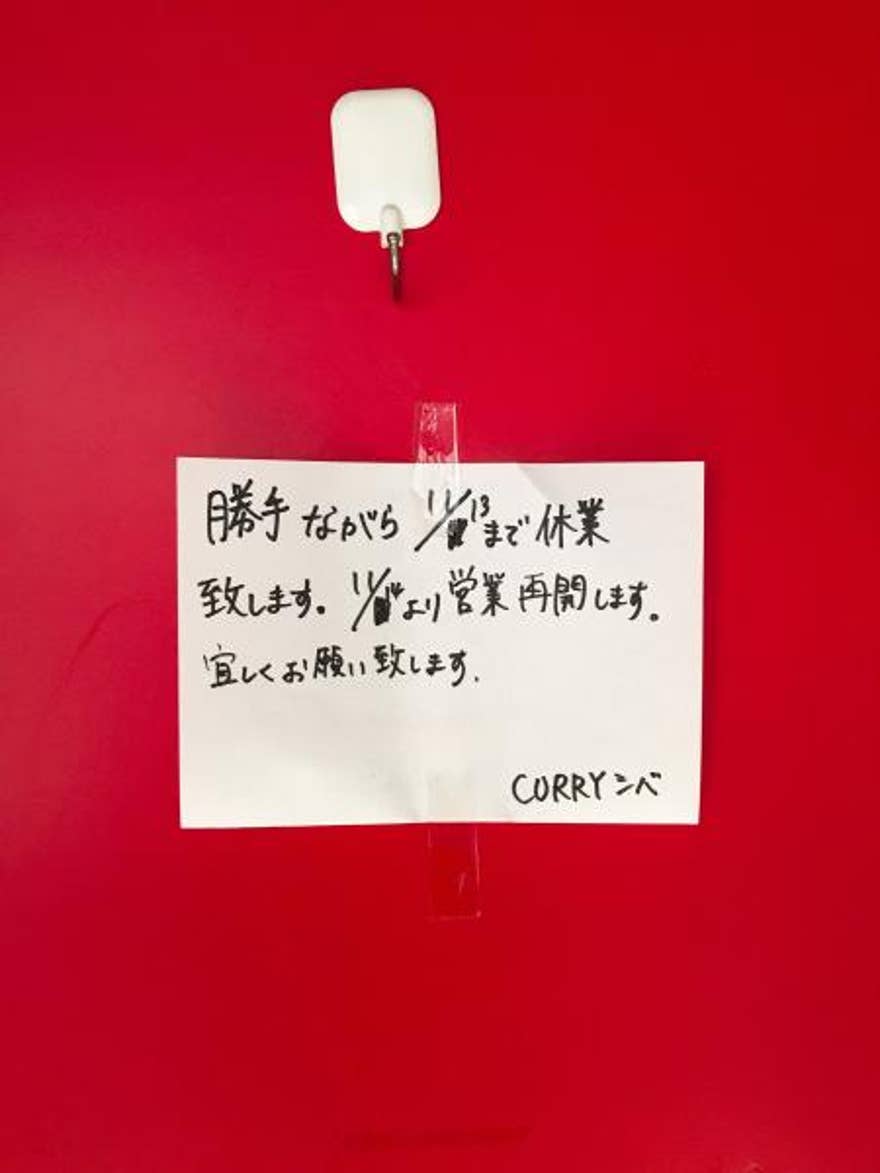 勝手ながら 11/13まで休業
致します。11/14より営業再開します。
宜しくお願い致します.
CURRYシバ